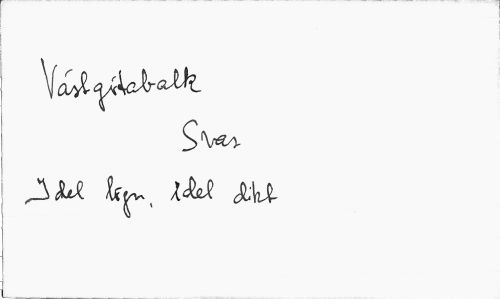 Västgötabalk
Svar
Idel lögn, idel dikt